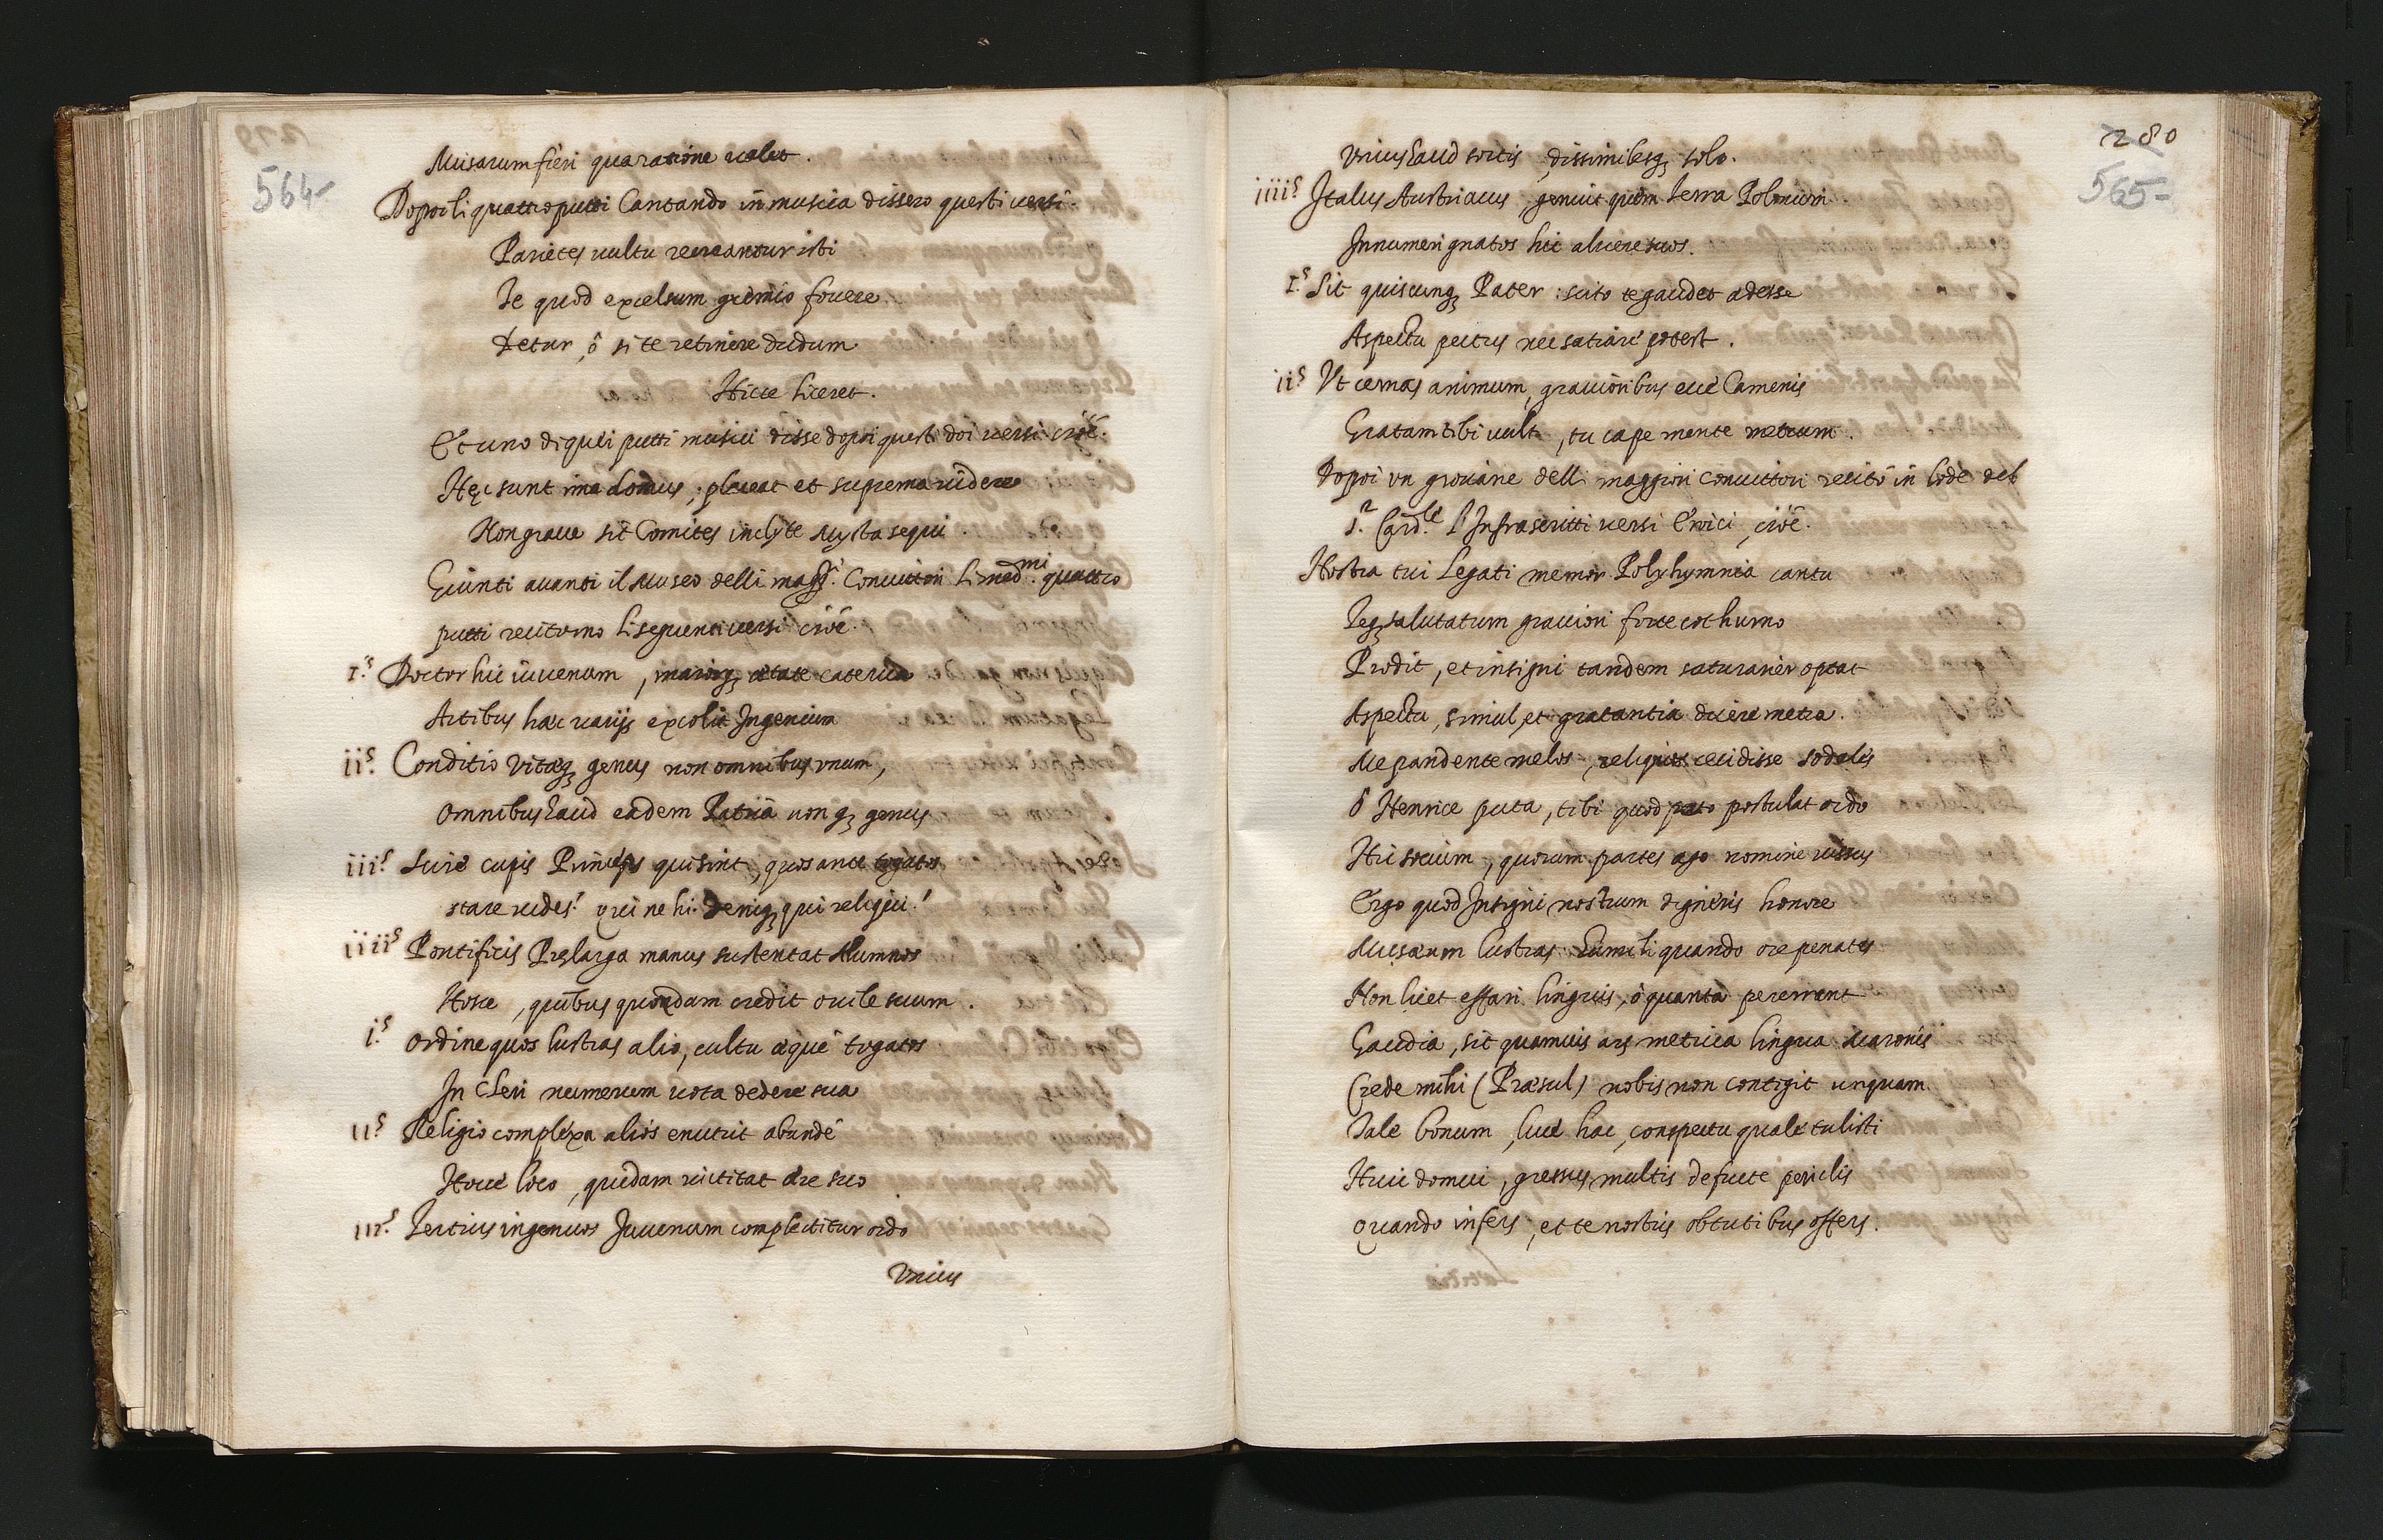 564
Musarum fieri qua ratione valet.
Dopoi li quattro putti Cantando in musica dissero questi versi.
Parietes vultu recreantur isti
Te quod excelsum gremio fovere
Detur, ô si te retinere dudum
Hicce liceret.
Et uno di queli putti musici disse dopoi questi doi versi cioè.
Hęc sunt ima domus, placeat et suprema videre
Non grave sit Comites inclyte Mysta sequi.
Giunti avanti il Museo delli magg.ri Convittori li med.mi quattro
putti recitorno li sequenti versi cioè.
I.s Doctor hic iuvenum, maiorq; ætate caterva
Artibus hac varijs excolit Ingenium
ii.s Conditio vitæq; genus non omnibus unum,
Omnibus haud eadem Patria non q; genus
iii.s Scire cupis Princeps qui sint, quos ante togatos
stare vides? qui ne hi. Deniq; qui reliqui?
iiii.s Pontificis Pręlarga manus sustentat Alumnos
Hosce, quibus quondam credit ovile suum.
i.s Ordine quos lustras alio, cultu æque togatos
In Cleri numerum vota dedere sua
ii.s Religio complexa alios enutrit abunde
Hocce loco, quidam victitat ære suo
iii.s Tertius ingenuos Juvenum complectitur ordo
Unius
280
565
Unius haud sortis, dissimilesq; solo.
iiii.s Italus Austriacus, genuit quem terra Polonum
Innumeri gnatos hic aluere suos.
I.s Sit quicunq; Pater: scito te gaudet adesse
Aspectu pectus nec satiare potest.
ii.s Ut cernas animum, gravioribus ecce Camenis
Gratam tibi vult, tu cape mente metrum.
Dopoi un giovane delli maggiori convittori recitò in lode del
S.r Card.le l'Infrascritti versi Eroici, cioè.
Nostra tui Legati memor Polyhymnia cantu
Teq; salutatum graviori forte cothurno
Prodit, et insigni tandem saturarier optat
Aspectu, simul, et gratantia dicere metra.
Me pandente melos, reliquos cecidisse sodales
ô Henrice puta, tibi quod pato postulat ordo
Hic socium, quorum partes ago nomine iussus
Ergo quod Insigni nostrum digneris honore
Musæum lustras humili quando ore penates
Non licet effari linguis, ô quanta pererrant
Gaudia, sit quamvis ars metrica lingua Maronis
Crede mihi (Præsul) nobis non contigit unquam
Tale bonum, luce hac, conspectu quale tulisti
Huic domui, gressus multis defuncte periclis
Quando infers, et te nostris obtutibus offers.